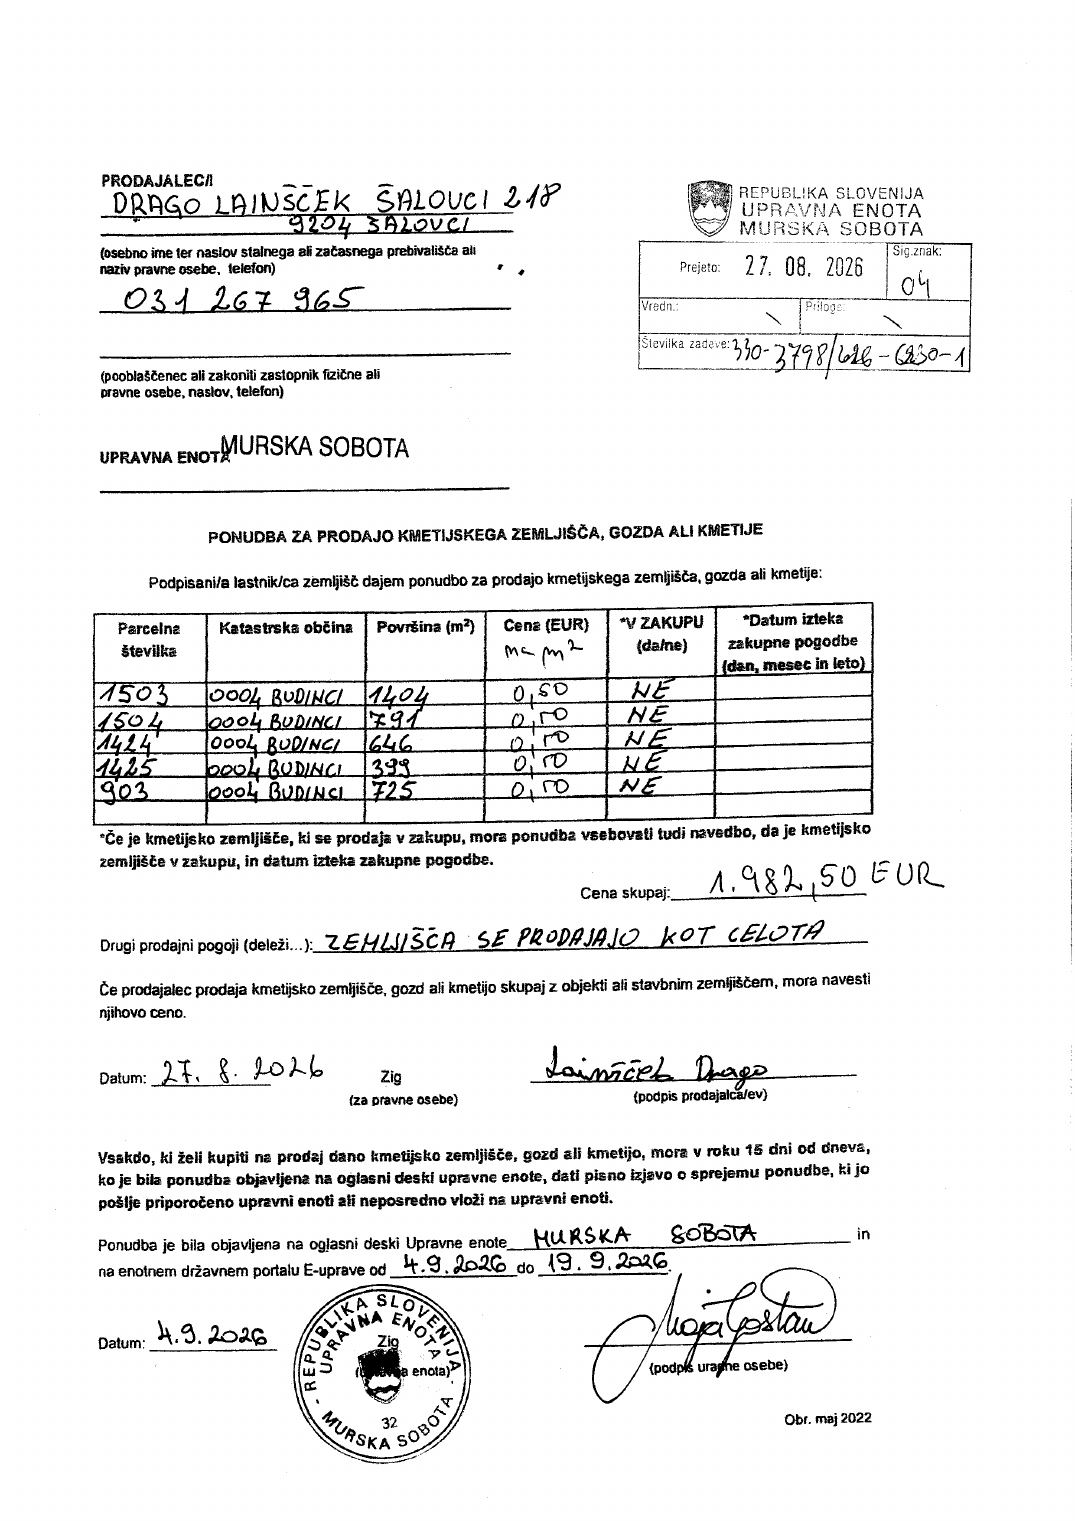 PRODAJALEC/I
DRAGO LAINŠČEK ŠALOVCI 218
9204 ŠALOVCI
(osebno ime ter naslov stalnega ali začasnega prebivališča ali
naziv pravne osebe, telefon)
031 267 965
(pooblaščenec ali zakoniti zastopnik fizične ali
pravne osebe, naslov, telefon)
UPRAVNA ENOTA MURSKA SOBOTA
REPUBLIKA SLOVENIJA
UPRAVNA ENOTA
MURSKA SOBOTA
Prejeto: 27. 08. 2026 Sig.znak: 04
Vredn.: \ Priloge: \
Številka zadeve: 330-3798/
PONUDBA ZA PRODAJO KMETIJSKEGA ZEMLJIŠČA, GOZDA ALI KMETIJE
Podpisani/a lastnik/ca zemljišč dajem ponudbo za prodajo kmetijskega zemljišča, gozda ali kmetije:
Parcelna številka Katastrska občina Površina (m²) Cena (EUR) na m2 *V ZAKUPU (da/ne) *Datum izteka zakupne pogodbe (dan, mesec in leto)
1503 0004 BUDINCI 1404 0,50 NE
1504 0004 BUDINCI 791 0,50 NE
1424 0004 BUDINCI 646 0,50 NE
1425 0004 BUDINCI 399 0,50 NE
903 0004 BUDINCI 725 0,50 NE
*Če je kmetijsko zemljišče, ki se prodaja v zakupu, mora ponudba vsebovati tudi navedbo, da je kmetijsko
zemljišče v zakupu, in datum izteka zakupne pogodbe.
Cena skupaj: 1.982,50 EUR
Drugi prodajni pogoji (deleži...): ZEMLJIŠČA SE PRODAJAJO KOT CELOTA
Če prodajalec prodaja kmetijsko zemljišče, gozd ali kmetijo skupaj z objekti ali stavbnim zemljiščem, mora navesti
njihovo ceno.
Datum: 27. 8. 2026 Žig Lainšček Drago
(za pravne osebe) (podpis prodajalca/ev)
Vsakdo, ki želi kupiti na prodaj dano kmetijsko zemljišče, gozd ali kmetijo, mora v roku 15 dni od dneva,
ko je bila ponudba objavljena na oglasni deski upravne enote, dati pisno izjavo o sprejemu ponudbe, ki jo
pošlje priporočeno upravni enoti ali neposredno vloži na upravni enoti.
Ponudba je bila objavljena na oglasni deski Upravne enote MURSKA SOBOTA in
na enotnem državnem portalu E-uprave od 4.9.2026 do 19.9.2026.
Datum: 4.9.2026 Žig
REPUBLIKA SLOVENIJA
UPRAVNA ENOTA
32
MURSKA SOBOTA
(podpis uradne osebe)
Obr. maj 2022